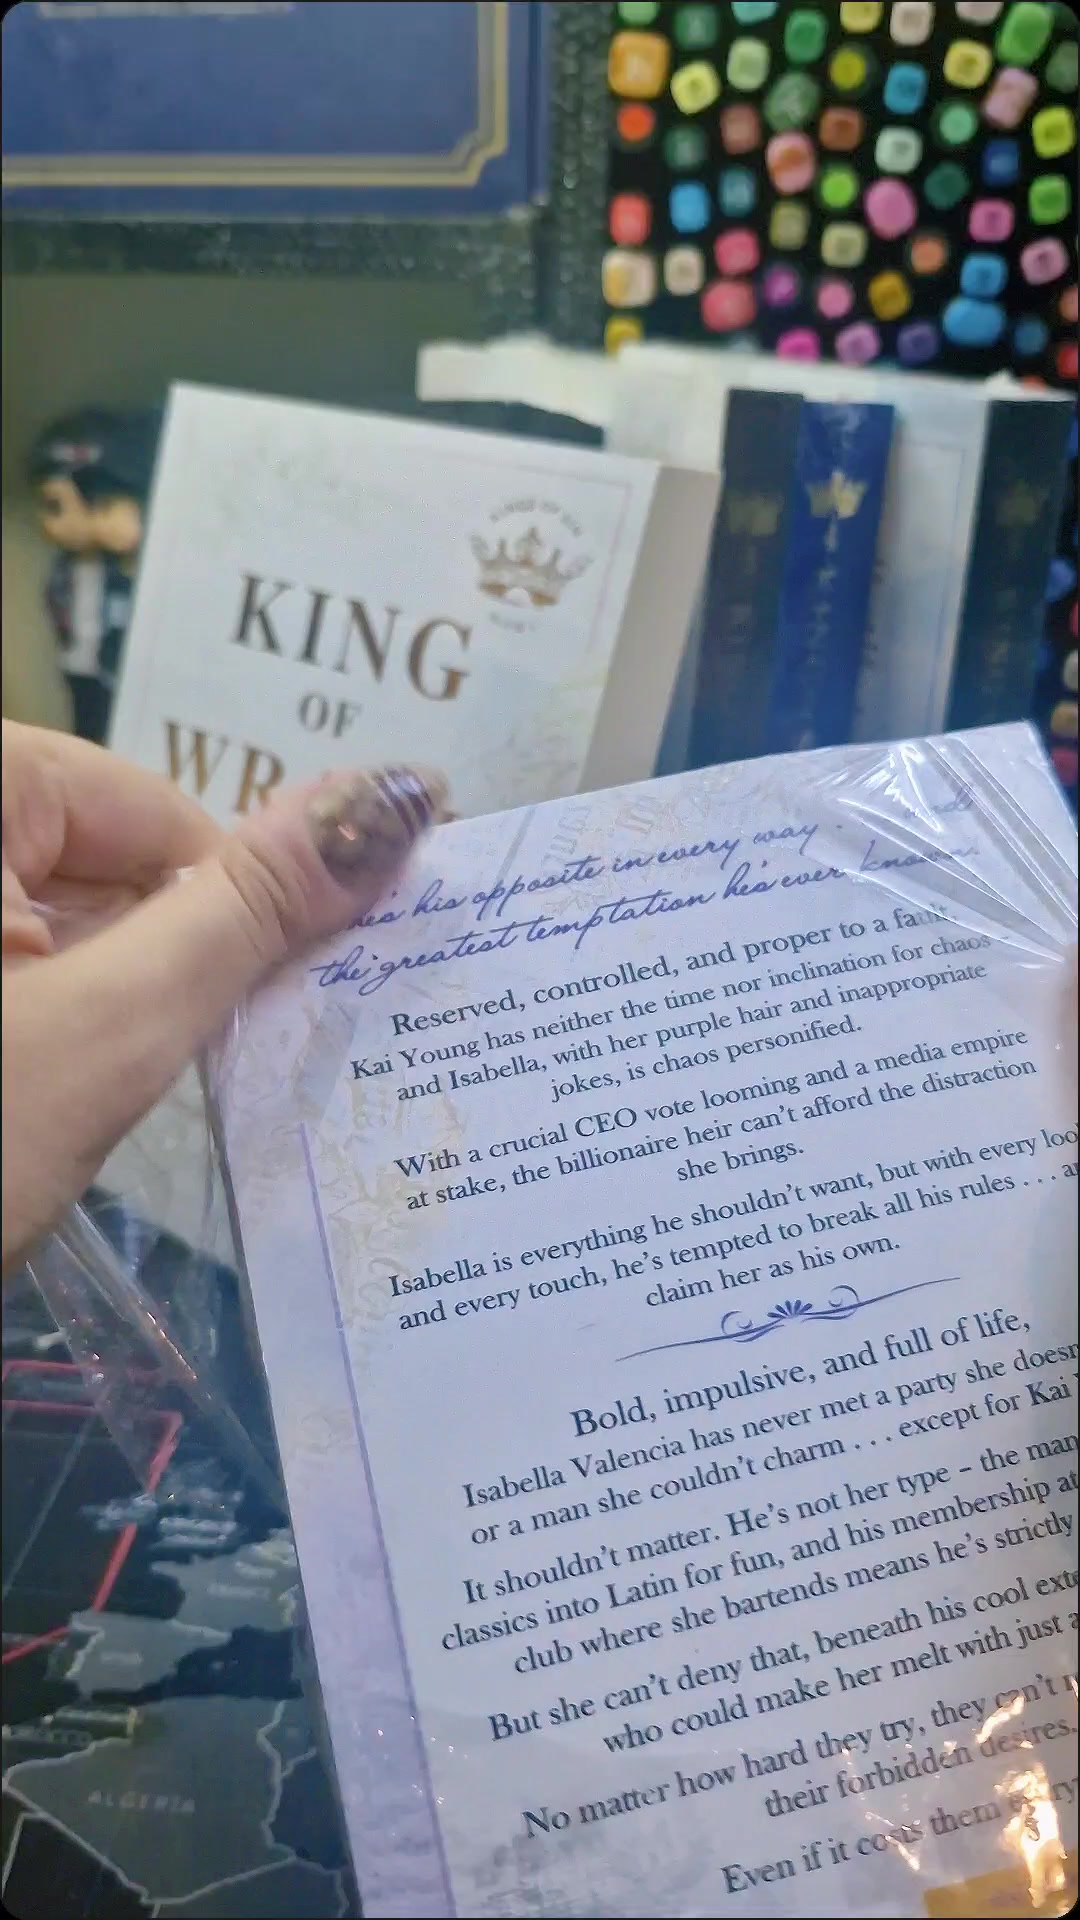 KINGS OF SIN
KING
OF
his opposite in every way
the greatest temptation he's ever known.
Reserved, controlled, and proper to a fault,
Kai Young has neither the time nor inclination for chaos –
and Isabella, with her purple hair and inappropriate
jokes, is chaos personified.
With a crucial CEO vote looming and a media empire
at stake, the billionaire heir can't afford the distraction
she brings.
Isabella is everything he shouldn't want, but with every
and every touch, he's tempted to break all his rules . . .
claim her as his own.
Bold, impulsive, and full of life,
Isabella Valencia has never met a party she
or a man she couldn't charm . . . except for Kai
It shouldn't matter. He's not her type – the man
classics into Latin for fun, and his membership at
club where she bartends means he's strictly
But she can't deny that, beneath his cool
who could make her melt with just a
No matter how hard they try, they can't
their forbidden desires.
Even if it costs them
ALGERIA